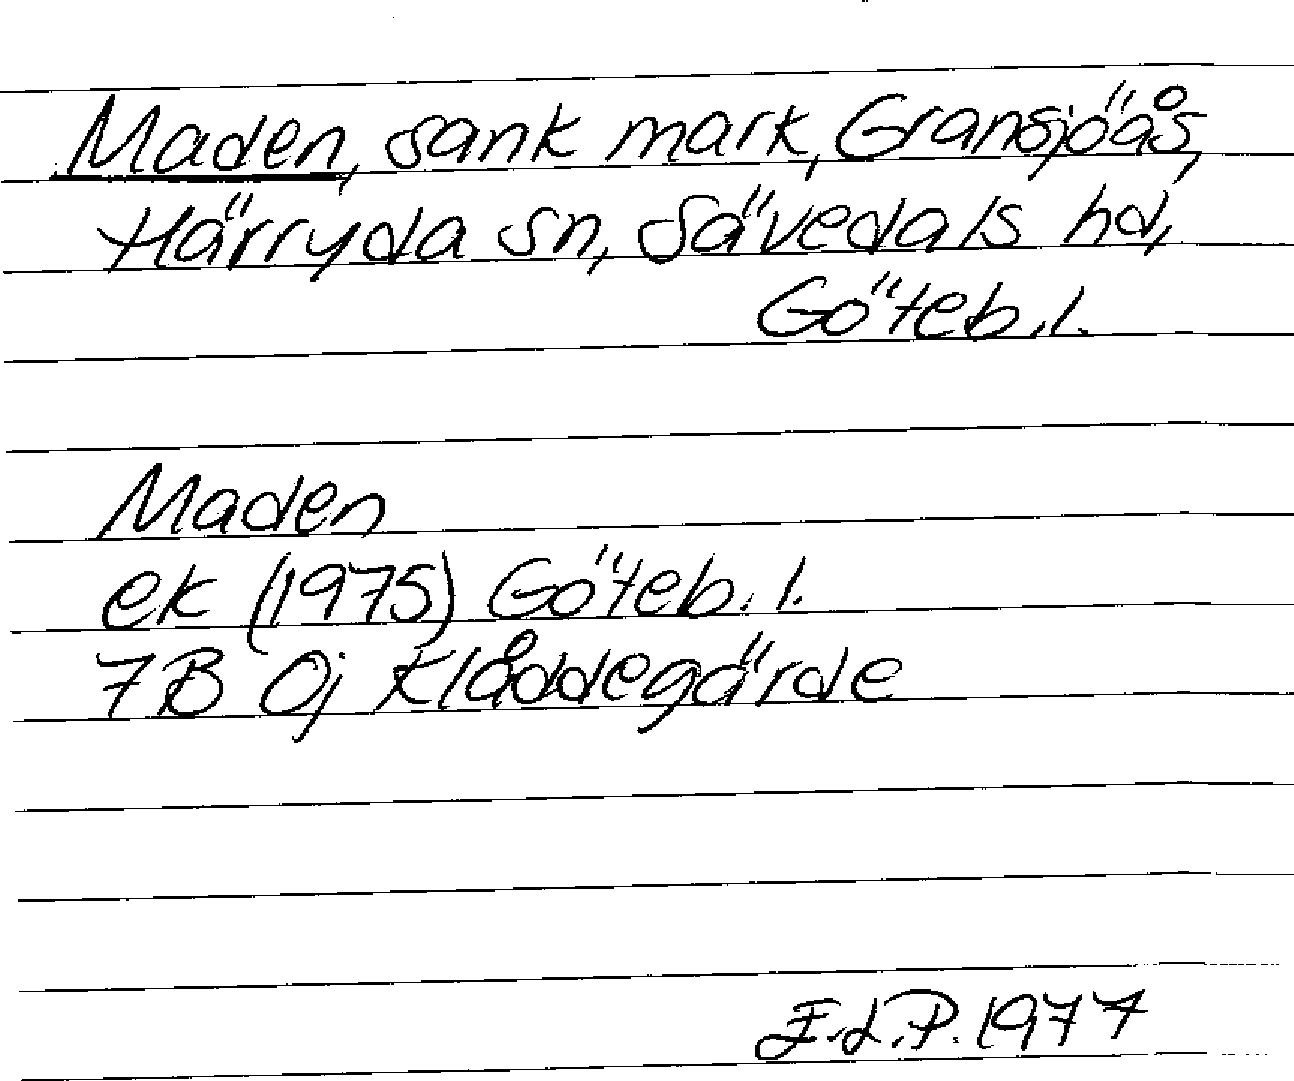 Maden, sank mark, Gransjöås,
Härryda sn, Sävedals hd,
Göteb. l.
Maden
ek (1975) Göteb. l.
7B 0j Klåddegärde
E.L.P. 1977